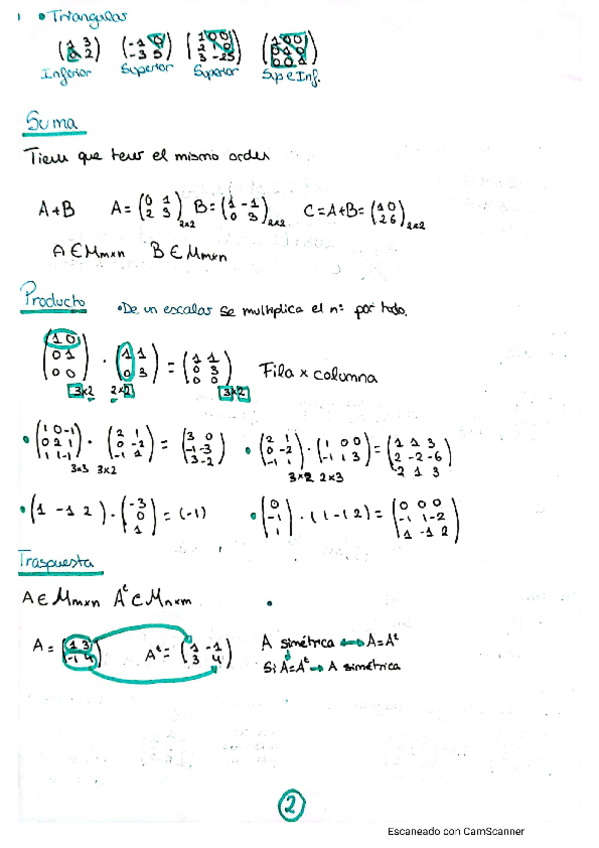 • Triangulares
(1 3 / 0 2) (-1 0 / -3 5) (1 0 0 / 2 1 0 / 3 -2 5) (1 0 0 / 0 1 0 / 0 0 1)
Inferior Superior Superior Sup e Inf.
Suma
Tienen que tener el mismo orden
A+B A=(0 1 / 2 3)2x2 B=(1 -1 / 0 3)2x2 C=A+B=(1 0 / 2 6)2x2
A∈Mmxn B∈Mmxn
Producto • De un escalar se multiplica el nº por todo.
(1 0 / 0 1 / 0 0) · (1 1 / 0 3) = (1 1 / 0 3 / 0 0) Fila x columna
3x2 2x2 3x2
• (1 0 -1 / 0 2 1 / 1 1 -1) · (2 1 / 0 -2 / -1 1) = (3 0 / -1 -3 / 3 -2) • (2 1 / 0 -2 / -1 1) · (1 0 0 / -1 1 3) = (1 1 3 / 2 -2 -6 / -2 1 3)
3x3 3x2 3x2 2x3
• (1 -1 2) · (-3 / 0 / 1) = (-1) • (0 / -1 / 1) · (1 -1 2) = (0 0 0 / -1 1 -2 / 1 -1 2)
Traspuesta
A∈Mmxn Aᵗ∈Mnxm
A = (1 3 / -1 4) Aᵗ = (1 -1 / 3 4) A simétrica ↔ A=Aᵗ
Si A=Aᵗ → A simétrica
2
Escaneado con CamScanner